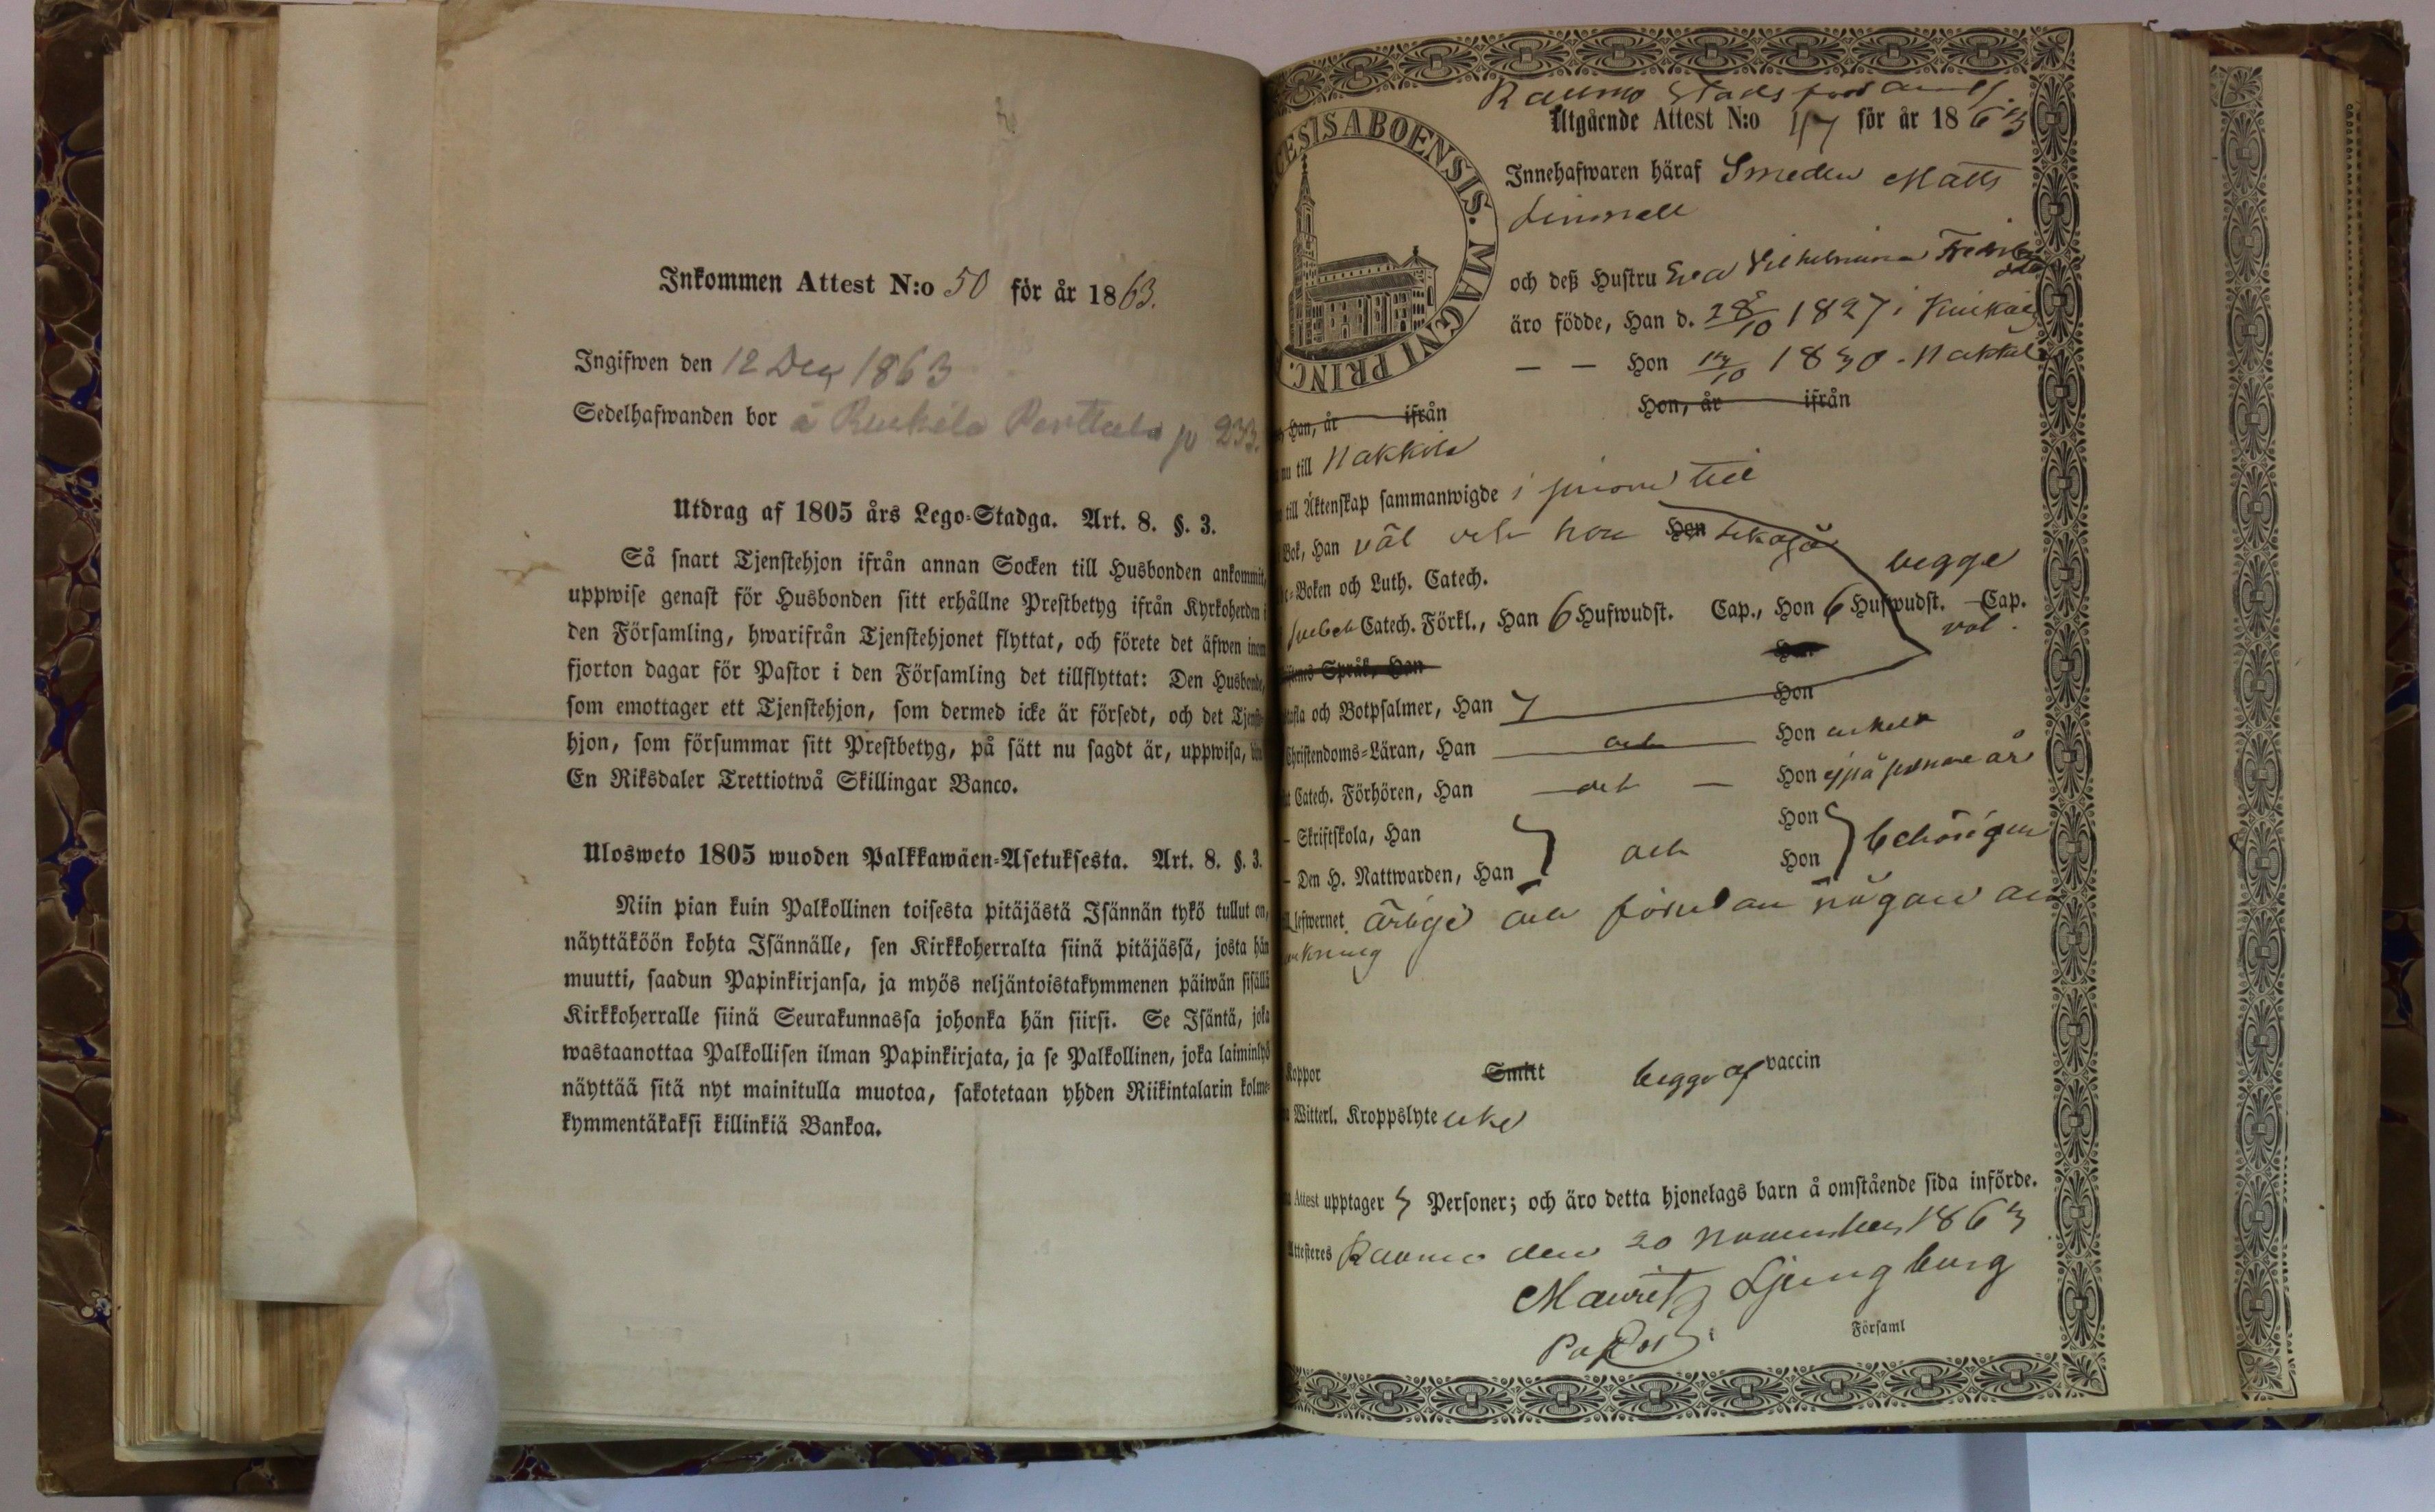 Inkommen Attest N:o 50 för år 1863.
Ingifwen den 12 Dec 1863
Sedelhafwanden bor å Penttala p 233.
Utdrag af 1805 års Lego-Stadga. Art. 8. §. 3.
Så snart Tjenstehjon ifrån annan Socken till Husbonden ankommit,
uppwise genast för Husbonden sitt erhållne Prestbetyg ifrån Kyrkoherden i
den Församling, hwarifrån Tjenstehjonet flyttat, och förete det äfwen inom
fjorton dagar för Pastor i den Församling det tillflyttat: Den Husbonde,
som emottager ett Tjenstehjon, som dermed icke är försedt, och det Tjenste-
hjon, som försummar sitt Prestbetyg, på sätt nu sagdt är, uppwisa,
En Riksdaler Trettiotwå Skillingar Banco.
Ulosweto 1805 wuoden Palkkawäen-Asetuksesta. Art. 8. §. 3.
Niin pian kuin Palkollinen toisesta pitäjästä Isännän tykö tullut on,
näyttäköön kohta Isännälle, sen Kirkkoherralta siinä pitäjässä, josta hän
muutti, saadun Papinkirjansa, ja myös neljäntoistakymmenen päiwän sisällä
Kirkkoherralle siinä Seurakunnassa johonka hän siirsi. Se Isäntä, joka
wastaanottaa Palkollisen ilman Papinkirjata, ja se Palkollinen, joka laiminlyö
näyttää sitä nyt mainitulla muotoa, sakotetaan yhden Riikintalarin kolme-
kymmentäkaksi killinkiä Bankoa.
CESIS ABOENSIS. MAGNI PRINC.
Raumo Stads
Utgående Attest N:o för år 1863
Innehafwaren häraf Smeden Matts
och deß Hustru Eva Vilhelmina
äro födde, Han d. 28/10 1827 i
— — Hon 1830 - Nakkila
Han, år ifrån Hon, år ifrån
nu till Nakkila
till Äktenskap sammanwigde i
Bok, Han väl och hon Hon
begge
-Boken och Luth. Catech.
Catech. Förkl., Han 6 Hufwudst. Cap., Hon 6 Hufwudst. Cap.
väl.
Språk, Han Hon
och Botpsalmer, Han 7 Hon
Christendoms-Läran, Han och Hon enkelt
Catech. Förhören, Han och Hon ej på senare år
- Skriftskola, Han Hon
- Den H. Nattwarden, Han och Hon behörigen
lefwernet ärlige och förutan någon an
märkning
Koppor Smitt begge af vaccin
Witterl. Kroppslyte icke
Attest upptager 5 Personer; och äro detta hjonelags barn å omstående sida införde.
Attesteres Raumo den 20 November 1863
Mauritz Ljungberg
Pastor i Församl